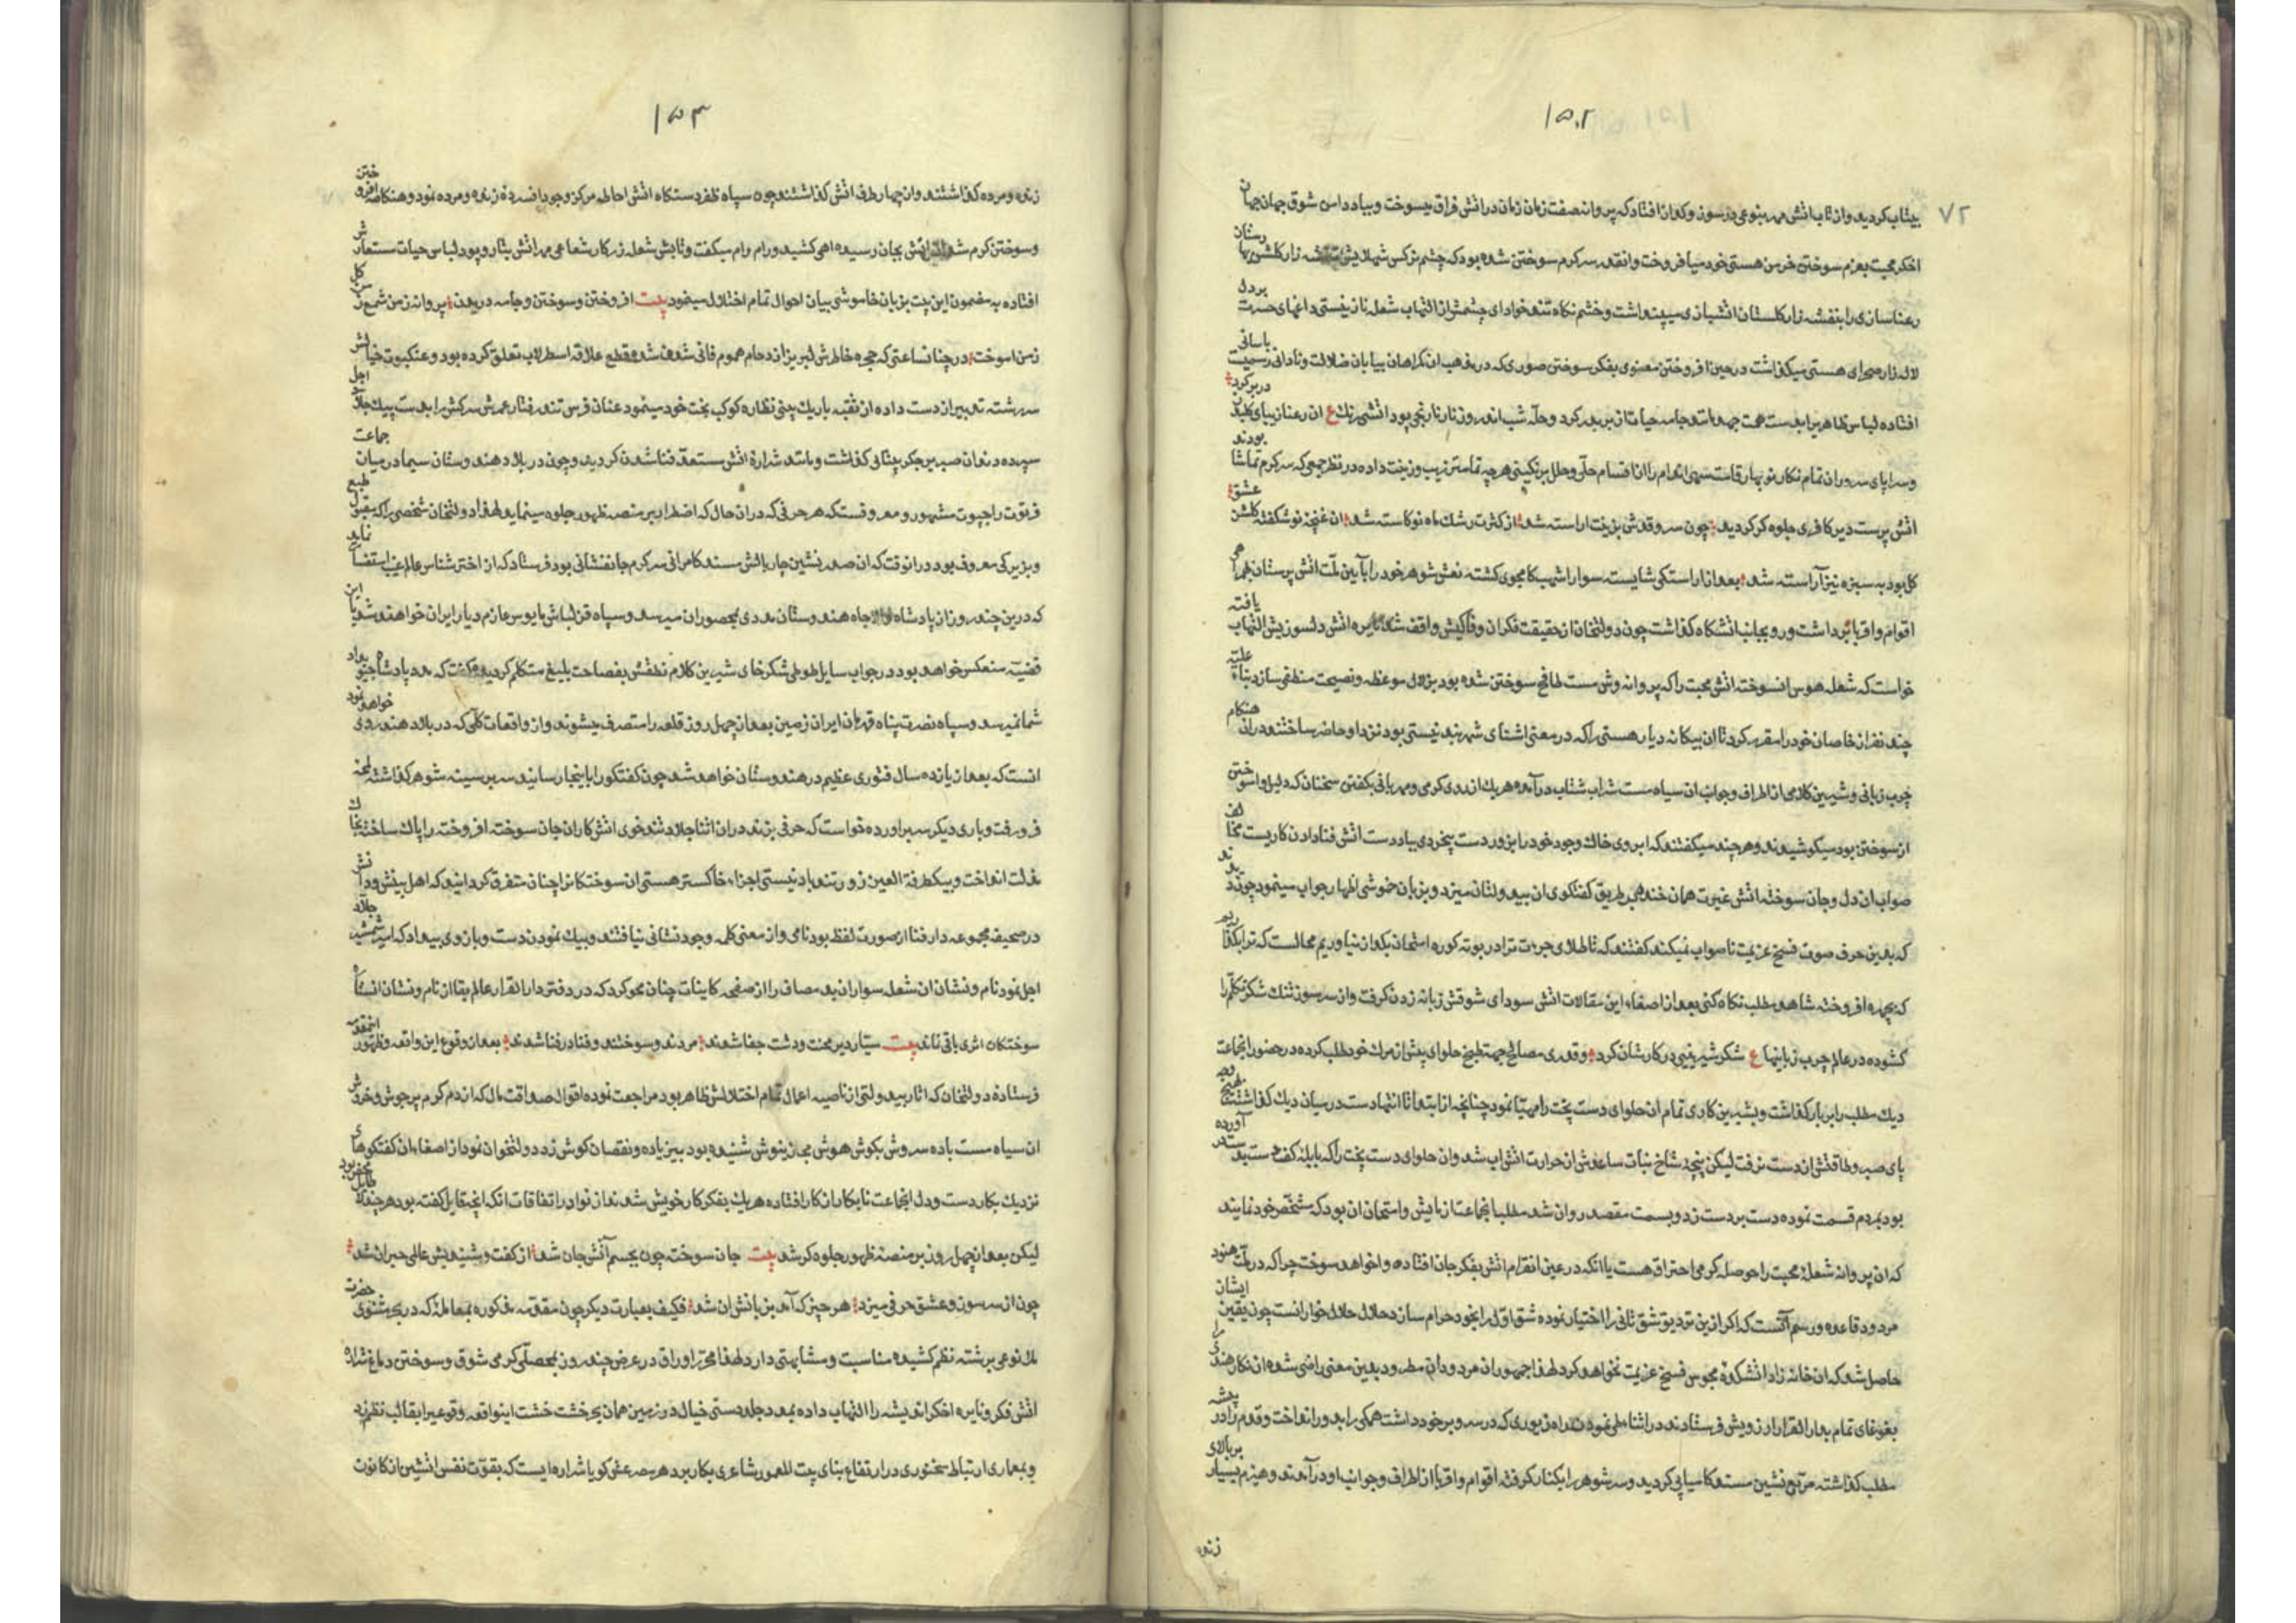 ۱۵۲
۷۲
بیتاب گردید و از تاب آتش مهر بنوعی در سوز و گداز افتاد که پروانه صفت زمان زمان در آتش فراق میسوخت و بباد دامن شوق جهان جهان
اخگر محبت بعزم سوختن خرمن هستی خود میافروخت و آنقدر سرگرم سوختن شده بود که چشم نرگس شهلایش زار گلشن بهارستان
رعنا سازی را بنفشه زار گلستان آتشبازی میپنداشت و خشم نگاه تندخو از التهاب شعله ناز نیستی داغهای حسرت بر دل
لاله زار صحرای هستی میگذاشت در حین افروختن معنوی بفکر سوختن صوری که در مذهب آن گمراهان بیابان ضلالت و نادانی
افتاده لباس ظاهر را بدست همت جامه حیات از بر بدر کرد و حله شب اندر روز نار نارنجی بود آتشی رنگ ع آن رعنا زیبای در بر کرد
و سراپای سرو آن تمام نگار نو بهار قامت سهی اندام را از اقسام حلی و حلل برنگینی هرچه تمامتر زیب و زینت داده در نظر جمعی که سرگرم تماشا بودند
آتش پرست دیر کافری جلوه گر گردید چون سرو قدش بزینت آراسته شد از کثرت رشک ماه نو کاسته شد آن غنچه نو شکفته گلشن عشق
گل بود به سبزه نیز آراسته شد بعد از آراستگی شایسته سوار اشهب کامجوی گشته نعش شوهر خود را بآیین ملت آتش پرستان همراه
اقوام و اقربا برداشت و رو بجانب آتشگاه گذاشت چون دولتخان از حقیقت فکر آن وفاکیش واقف شد نایره آتش دلسوزیش التهاب یافته
خواست که شعله هوس آن سوخته آتش محبت را که پروانه وش مست طافح سوختن شده بود بزلال موعظه و نصیحت منطفی سازد بناء علیه
چند نفر از خاصان خود را مقرر کرد تا آن بیگانه دیار هستی را که در معنی آشنای شهربند نیستی بود نزد او حاضر ساختند در آن هنگام
چرب زبانی و شیرین کلامی از اطراف و جوانب آن سیاه مست شراب شتاب درآمده هر یک از روی گرمی و مهربانی بگفتن سخنان که دلیل وا سوختن
از سوختن بود میکوشیدند و هر چند میگفتند که آبروی خاک وجود خود را بزور دست بیخردی بباد دست آتش فنا دادن کاریست مخالف
صواب آن دل و جان سوخته آتش غیرت همان خنده بر طریق گفتگوی آن بیدولتان میزد و بزبان خموشی اظهار جواب مینمود چون دیدند
که بدین حرف صوت فسخ عزیمت ناصواب نمیکند گفتند که تا طلای جرءت ترا در بوته کوره امتحان بگداز نیاوریم محالست که ترا بگذاریم
که چهره افروخته شاهد مطلب نگاه کنی بعد از اصغاء این مقالات آتش سودای شوقش زبانه زدن گرفت و از سر سوز تنک شکر تکلم را
گشوده در عالم چرب زبانیها ع شکر شیرینی در کارشان کرد و قدری مصالح جهة طبخ حلوای پیش از مرگ خود طلب کرده در حضور انجماعت
دیک مطلب را بر بار گذاشت و بشیرین کاری تمام آن حلوای دست پخت را مهیا نمود چنانچه از ابتدا تا انتها دست در میان دیک گذاشته
پای صبر و طاقتش از دست نرفت لیکن پنجه شاخ نبات ساعدش از حرارت آتش آب شد و آن حلوای دست پخت را که
بود بمردم قسمت نموده دست بر دست زد و بسمت مقصد روان شد مطلب انجماعت از مایش و امتحان آن بود که مشخص خود نمایند
که آن پروانه شعله محبت را حوصله گرمی احتراق هست یا آنکه در عین اقدام آتش بفکر جان افتاده وا خواهد سوخت چرا که در ملت هنود
مردود قاعده و رسم آنست که اگر ازین تردید شق ثانی را اختیار نموده شق اول را بخود حرام سازد حلال حلال خوارانست چون یقین ایشان
حاصل شد که آن خانه زاد آتشکده مجوس فسخ عزیمت نخواهد کرد لهذا جمهور آن مردودان مطرود بدین معنی راضی شده آن نگار هندی را
بغوغای تمام بدار القرار ارزویش فرستادند در اثناء طی نمودن راه زیوری که در سر و بر خود داشت همگی را بدور انداخت و قدم در
مطلب گذاشته مربع نشین مسند کامیابی گردید و سر شوهر را بکنار گرفته اقوام و اقربا از اطراف و جوانب او درآمدند و هیزم بسیار بر بالای
زنده
۱۵۳
زنده و مرده گذاشتند و از چهار طرف آتش گذاشتند چون سپاه ظفر دستگاه آتش احاطه مرکز وجود افسرده زنده و مرده نمود و هنگامه افروختن
و سوختن گرم شد آتش بجان رسیده آهی کشید و رام رام میگفت و تابش شعله زرکار شعاعی مهر آتش بتار و پود لباس حیات مستعارش
افتاده به مضمون این بیت بزبان خاموشی بیان احوال تمام اختلال مینمود بیت افروختن و سوختن و جامه دریدن پروانه ز من شمع ز من گل
ز من آموخت در چنان ساعتی که حجره خاطرش لبریز ازدحام هموم فانی شدن شده قطع علاقه اسطرلاب تعلق کرده بود و عنکبوت خیالش
سررشته تدبیر از دست داده از ثقبه باریک بینی نظاره کوکب بخت خود مینمود عنان فرس تند رفتار عمر سرکش را بدست پیک اجل
سپرده دندان صبر بر جگر بیتابی گذاشت و مانند شراره آتش مستعد فنا شدن گردید و چون در بلاد هندوستان سیما در میان جماعت
فرقوت راجپوت مشهور و معروفست که هر حرفی که در آن حال که اضطرار بر منصه ظهور جلوه مینماید لهذا دولتخان شخصی را که مقبول طبع
و بزیرکی معروف بود در انوقت که آن صدر نشین چاربالش مسند کامرانی سرگرم جانفشانی بود فرستاد که از اختر شناس عالم غیب استفسار نماید
که درین چند روز از پادشاه والاجاه هندوستان مددی بمحصوران میرسد و سپاه قزلباش مایوس عازم دیار ایران خواهند شد یا این
قضیه منعکس خواهد بود در جواب سایل طوطی شکرخای شیرین کلام نطقش بفصاحت بلیغ متکلم گردیده گفت که مدد پادشاه
شما نمیرسد و سپاه نصرت پناه قهرمان ایران زمین بعد از چهل روز قلعه را متصرف میشوند و از واقعات کلی که در بلاد هند روی خواهد نمود
آنست که بعد از یازده سال فتوری عظیم در هندوستان خواهد شد چون گفتگو را باینجا رسانید سر بر سینه شوهر گذاشته لمحه
فرو رفت و باری دیگر سر برآورده خواست که حرفی بزند در آن اثنا جلاد تندخوی آتش کار آن جان سوخته افروخته را پاک ساخته بخاک
مذلت انداخت و بیکطرفة العین زور تندباد نیستی اجزاء خاکستر هستی آن سوختگان را چنان متفرق گردانید که اهل بینش و دانش
در صحیفه مجموعه دار فنا از صورت لفظ بود نامی و از معنی کلمه وجود نشانی نیافتند و بیک نمودن دست و بازوی بیداد که جلاد
اجل نمود نام و نشان آن شعله سواران بد مصاف را از صفحه کاینات چنان محو کرد که در دفتر دار القرار عالم بقا از نام و نشان
سوختگان اثری باقی نماند بیت سیار دیر محنت و دشت جفا شدند مردند و سوختند و فنا در فنا شدند بعد از وقوع این واقعه و ظهور اینمقدمه
فرستاده دولتخان که آثار بیدولتی از ناصیه اعمال تمام اختلالش ظاهر بود مراجعت نموده اقوال صداقت مآل که از دم گرم پر جوش و خروش
آن سیاه مست باده سروش بگوش هوش مجاز نیوش شنیده بود بی زیاده و نقصان گوش زد دولتخان نمود از اصغاء آن گفتگوهای
نزدیک بکار دست و دل انجماعت نابکار از کار افتاده هر یک بفکر کار خویش شدند از نوادر اتفاقات آنکه آنچه قایل گفته بود هر چند
لیکن بعد از چهل روز بر منصه ظهور جلوه گر شد بیت جان سوخته چون بجسم آتش جان شد از گفت و شنیدش عالمی حیران شد
چون از سر سوز و عشق حرفی میزد هر چیز که آمد بزبانش آن شد فکیف بعبارت دیگر چون مقدمه مذکوره بمعامله که در بحر مثنوی حضرت
ملا نوعی برشته نظم کشیده مناسبت و مشابهتی دارد لهذا محرر اوراق در عرض چند روز بمحصلی گرمی شوق و سوختن دماغ شراره
آتش فکر و نایره اخگر اندیشه را التهاب داده بمدد جلد دستی خیال در زمین همان بحر خشت خشت اینواقعه وقوعی را بقالب نظم زد
و بمعماری ارتباط سخنوری در ارتفاع بنای بیت المعمور شاعری بکار برد هر مصرعش گویا شراره ایست که بقوت نفس آتشین از کانون